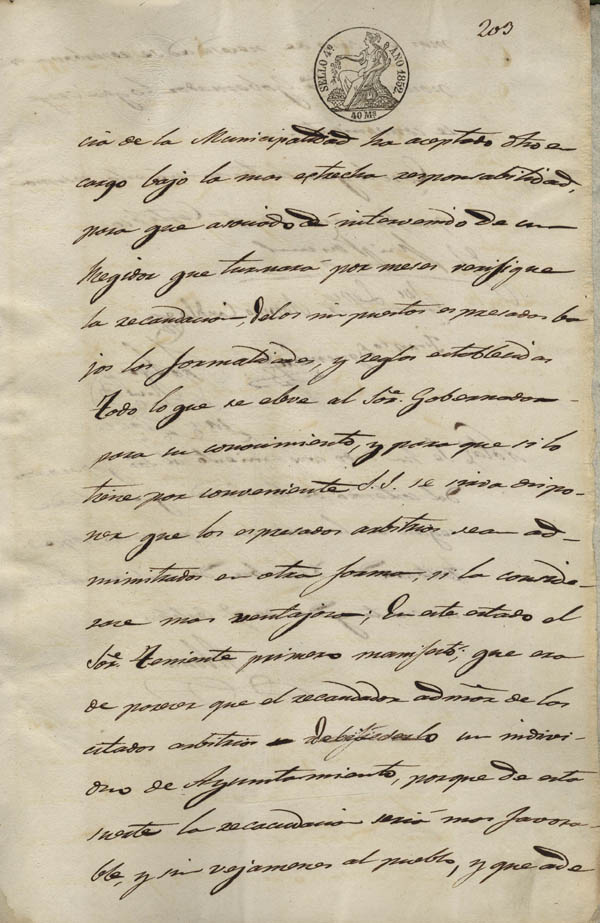 203
SELLO 4º AÑO 1852.
40 Ms
cia de la Municipalidad ha aceptado dho en
cargo bajo la mas estrecha responsabilidad,
para que asociado é intervenido de un
Regidor que turnará por meses verifique
la recaudacion, delos impuestos espresados ba
jos los formalidades, y reglas establecidas
Todo lo que se eleve al Sor. Gobernador
para su conocimiento, y para que si lo
tiene por conveniente S.S. se sirva dispo-
ner que los espresados arbitrios sean ad-
ministrados en otra forma, si la conside-
rase mas ventajosa; En este estado el
Sor. Teniente primero manifestó; que era
de parecer que el recaudador admor de los
citados arbitrios serlo un indivi-
duo de Ayuntamiento, porque de esta
suerte la recaudacion seria mas favora-
ble, y sin vejamenes al pueblo, y que ade